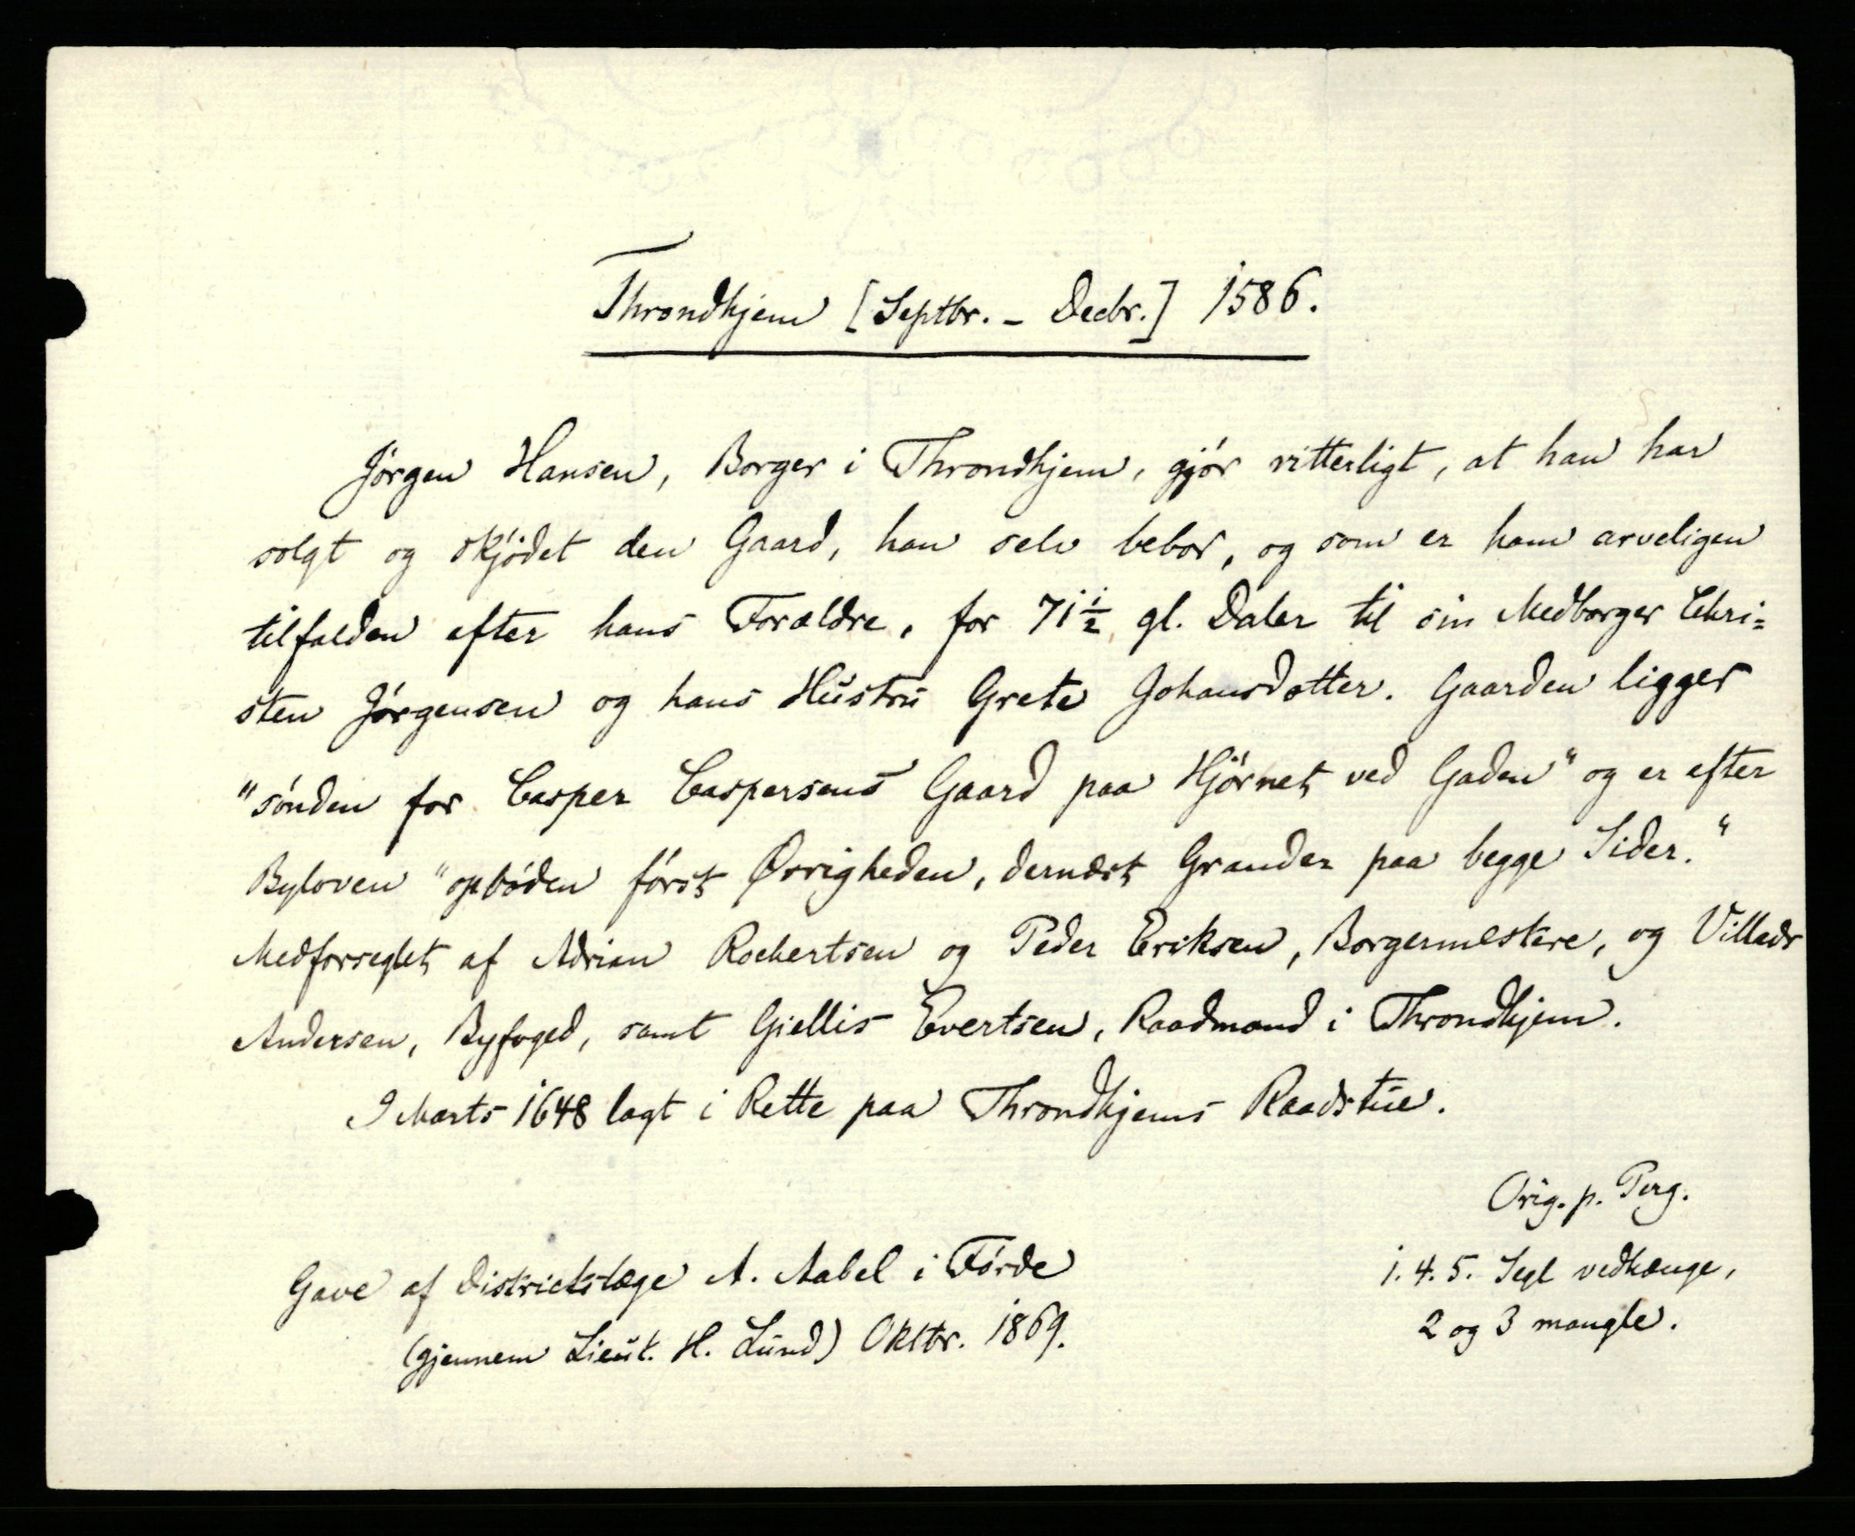 Throndhjem [Septbr. - Decbr.] 1586.
Jörgen Hansen, Borger i Throndhjem, gjör vitterligt, at han har
solgt og skjödet den Gaard, han selv bebor, og som er ham arveligen
tilfalden efter hans Forældre, for 71 1/2 gl. Daler til sin Medborger Chri=
sten Jörgensen og hans Hustru Grete Johansdotter. Gaarden ligger
"sönden for Casper Caspersens Gaard paa Hjörnet ved Gaden" og er efter
Byloven "opböden först Øvrigheden, dernæst Grander paa begge Sider."
Medforseglet af Adrian Rockertsen og Peder Eriksen, Borgermestere, og Villads
Andersen, Byfoged, samt Giellis Evertsen, Raadmand i Throndhjem.
I Marts 1648 lagt i Rette paa Throndhjems Raadstue.
Orig. p. Perg.
Gave af Distriktslæge A. Aabel i Förde
1. 4. 5. Segl vedhænge,
(gjennem Lieut. H. Lund) Oktbr. 1869.
2 og 3 mangle.